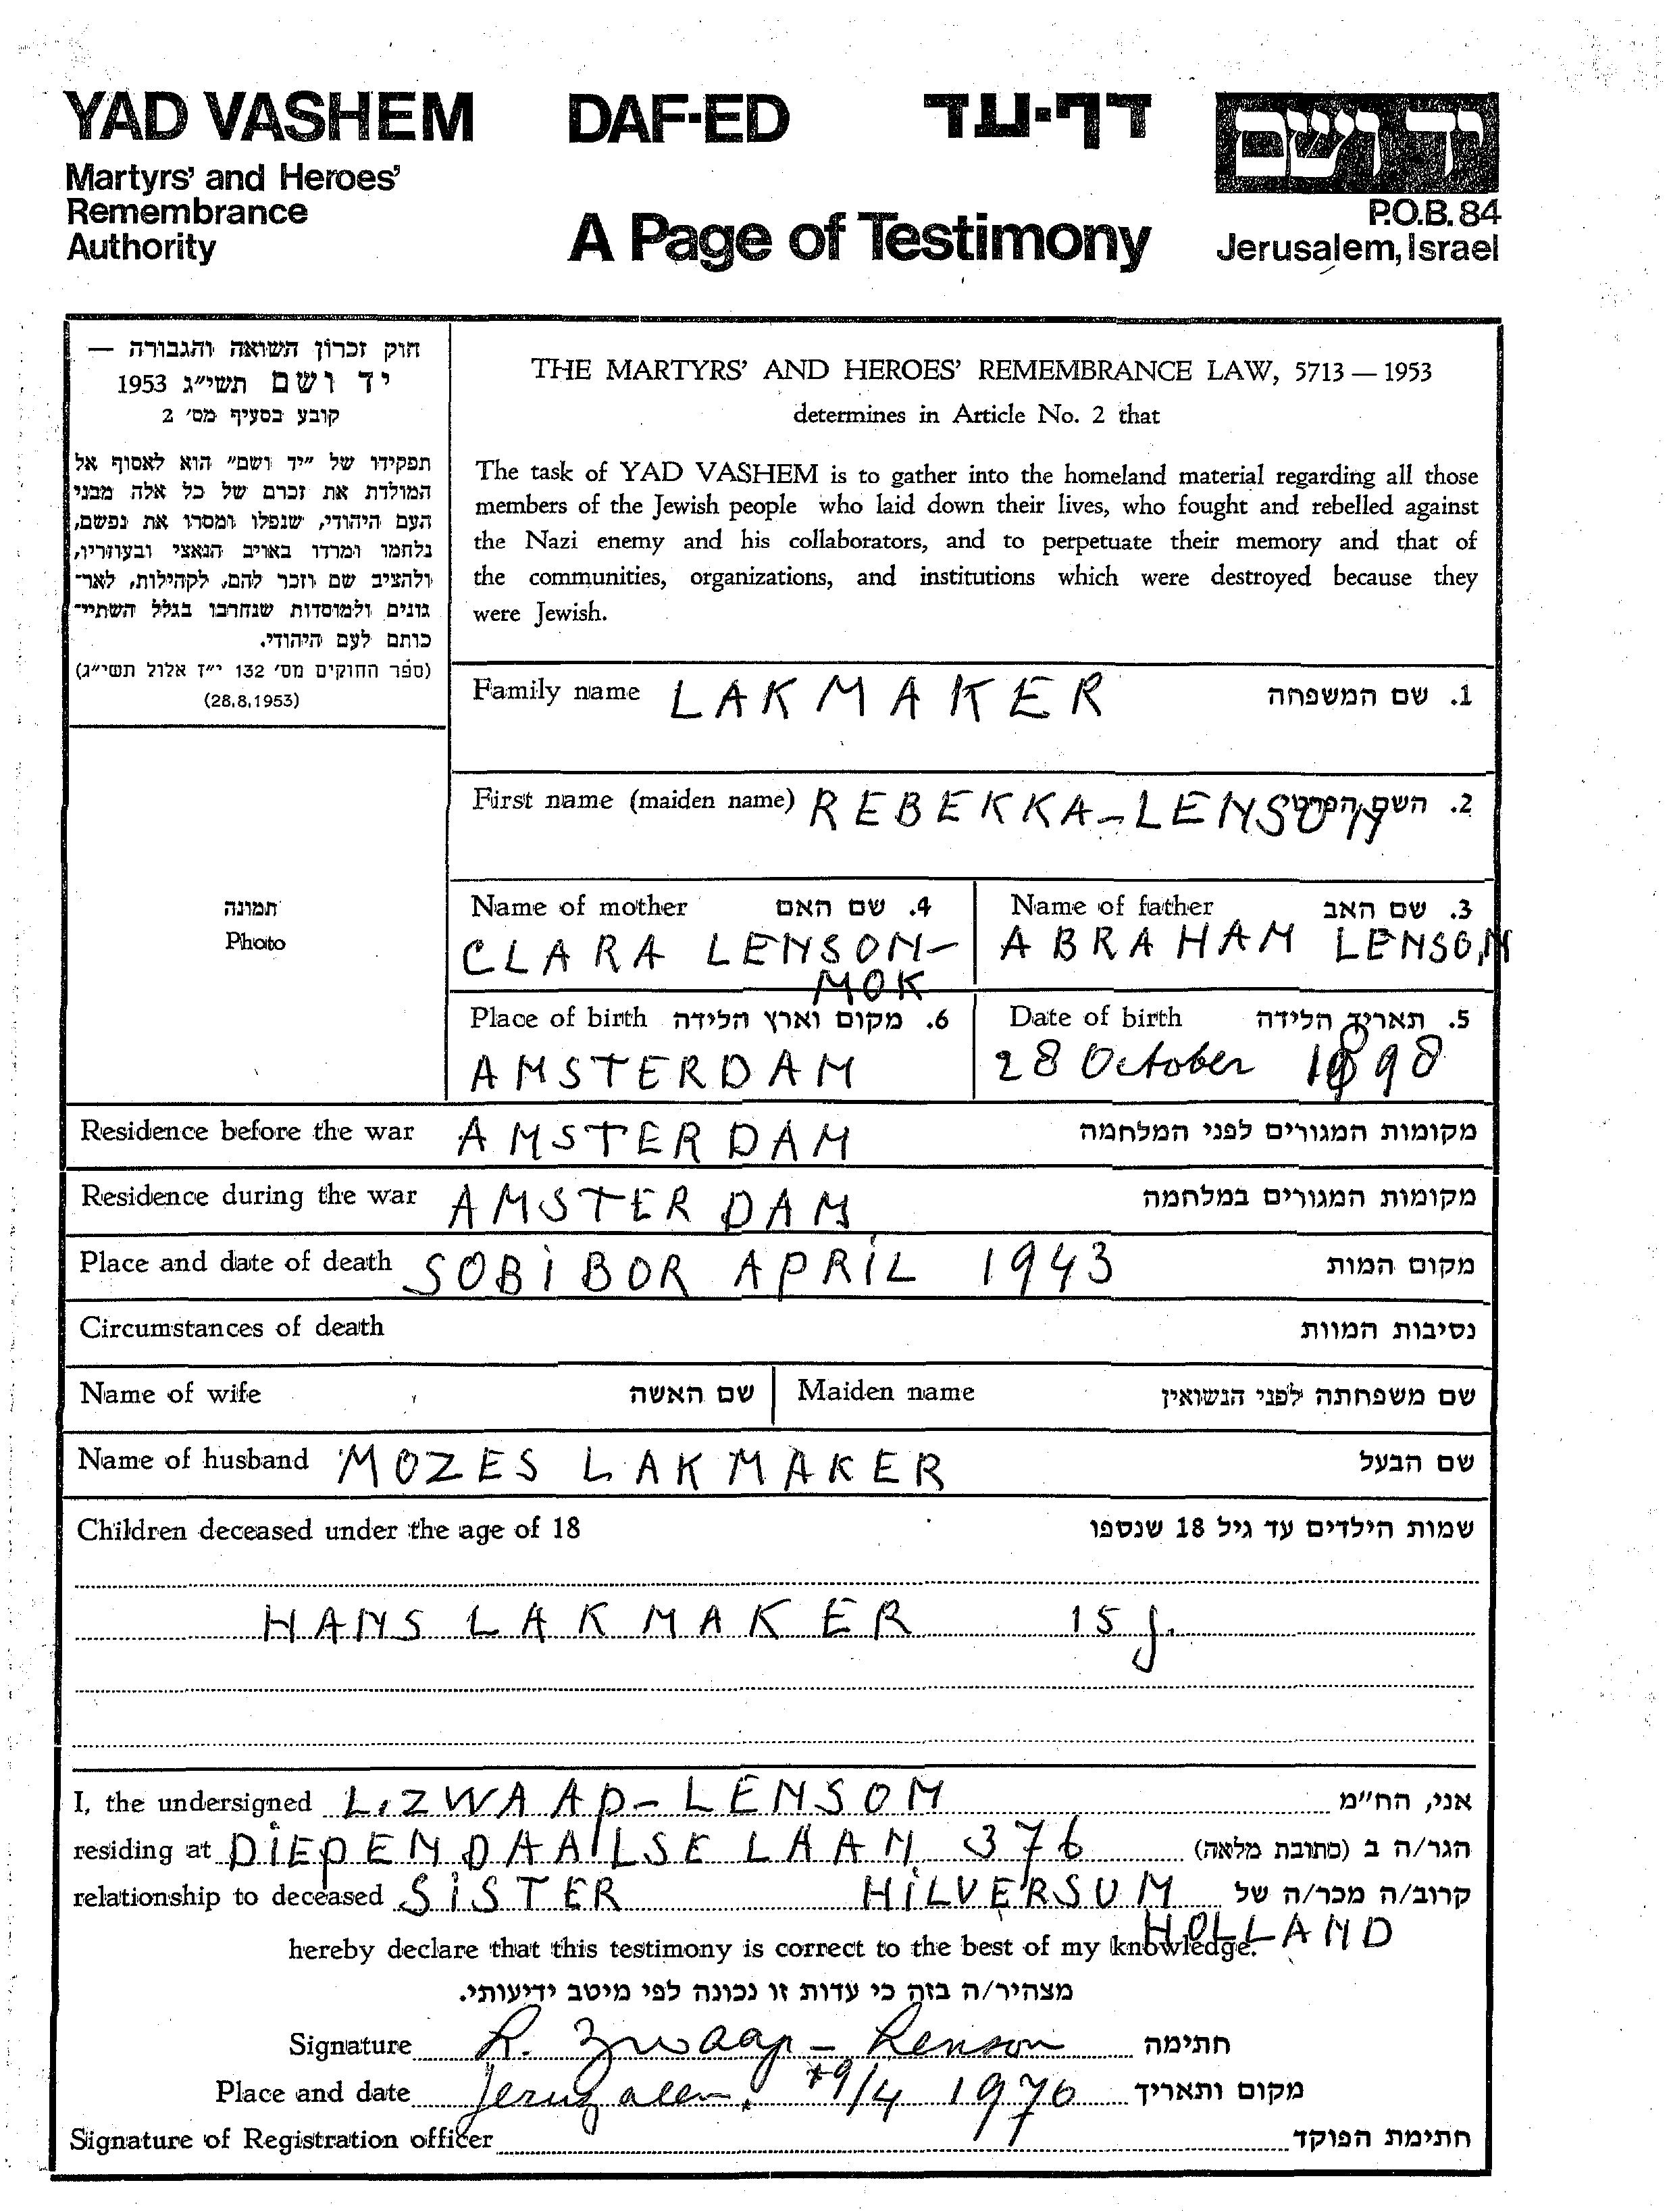 YAD VASHEM DAF-ED דף-עד יד ושם
Martyrs' and Heroes'
Remembrance
Authority
A Page of Testimony
P.O.B. 84
Jerusalem, Israel
חוק זכרון השואה והגבורה —
יד ושם תשי״ג 1953
קובע בסעיף מס׳ 2
תפקידו של ״יד ושם״ הוא לאסוף אל
המולדת את זכרם של כל אלה מבני
העם היהודי, שנפלו ומסרו את נפשם,
נלחמו ומרדו באויב הנאצי ובעוזריו,
ולהציב שם וזכר להם, לקהילות, לאר־
גונים ולמוסדות שנחרבו בגלל השתיי־
כותם לעם היהודי.
(ספר החוקים מס׳ 132 י״ז אלול תשי״ג)
(28.8.1953)
THE MARTYRS' AND HEROES' REMEMBRANCE LAW, 5713 — 1953
determines in Article No. 2 that
The task of YAD VASHEM is to gather into the homeland material regarding all those
members of the Jewish people who laid down their lives, who fought and rebelled against
the Nazi enemy and his collaborators, and to perpetuate their memory and that of
the communities, organizations, and institutions which were destroyed because they
were Jewish.
Family name LAKMAKER 1. שם המשפחה
First name (maiden name) REBEKKA-LENSON 2. השם הפרטי
תמונה
Photo
Name of mother 4. שם האם
CLARA LENSON-
MOK
Name of father 3. שם האב
ABRAHAM LENSON
Place of birth 6. מקום וארץ הלידה
AMSTERDAM
Date of birth 5. תאריך הלידה
28 October 1898
Residence before the war AMSTERDAM מקומות המגורים לפני המלחמה
Residence during the war AMSTERDAM מקומות המגורים במלחמה
Place and date of death SOBIBOR APRIL 1943 מקום המות
Circumstances of death נסיבות המוות
Name of wife שם האשה Maiden name שם משפחתה לפני הנשואין
Name of husband MOZES LAKMAKER שם הבעל
Children deceased under the age of 18 שמות הילדים עד גיל 18 שנספו
HANS LAKMAKER 15 j.
I, the undersigned L. ZWAAP-LENSON אני, הח״מ
residing at DIEPENDAALSE LAAN 376 הגר/ה ב (כתובת מלאה)
relationship to deceased SISTER HILVERSUM קרוב/ה מכר/ה של
HOLLAND
hereby declare that this testimony is correct to the best of my knowledge.
מצהיר/ה בזה כי עדות זו נכונה לפי מיטב ידיעותי.
Signature R. Zwaap-Lenson חתימה
Place and date Jeruzalem. 9/4 1976 מקום ותאריך
Signature of Registration officer חתימת הפוקד